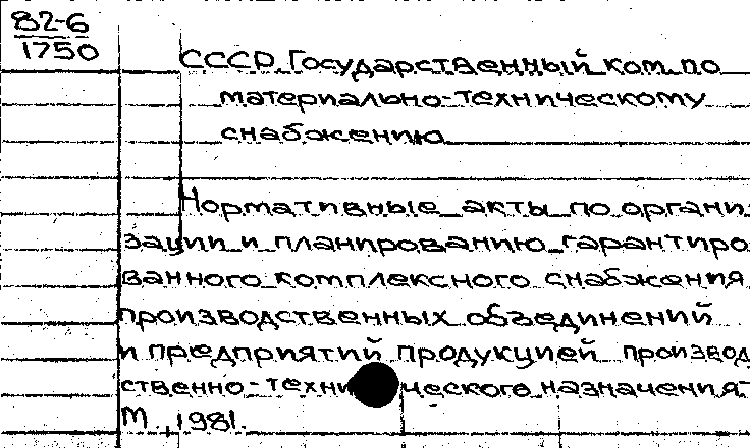 82-6
1750
СССР. Государственный ком. по
материально-техническому
снабжению
Нормативные акты по органи
зации и планированию гарантиро
ванного комплексного снабжения
производственных объединений
и предприятий продукцией производ
ственно-технического назначения.
М., 1981.